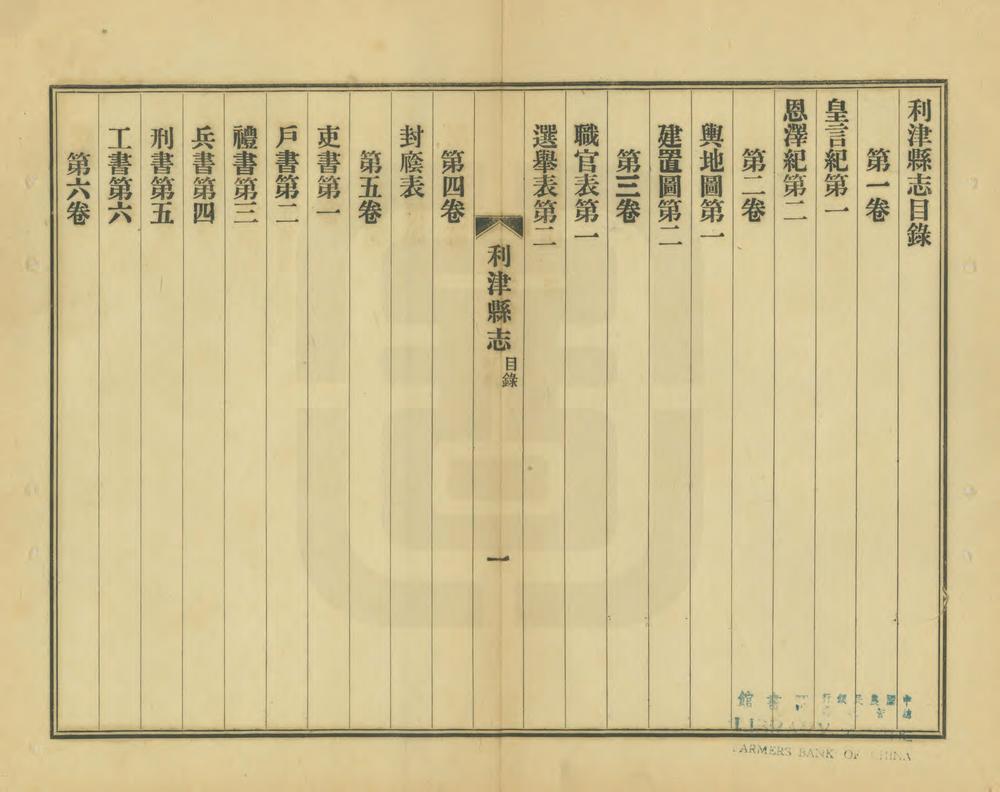 利津縣志目錄
第一卷
皇言紀第一
恩澤紀第二
第二卷
輿地圖第一
建置圖第二
第三卷
職官表第一
選舉表第二
利津縣志
目錄
一
第四卷
封廕表
第五卷
吏書第一
戶書第二
禮書第三
兵書第四
刑書第五
工書第六
第六卷
書館
FARMERS BANK OF CHINA